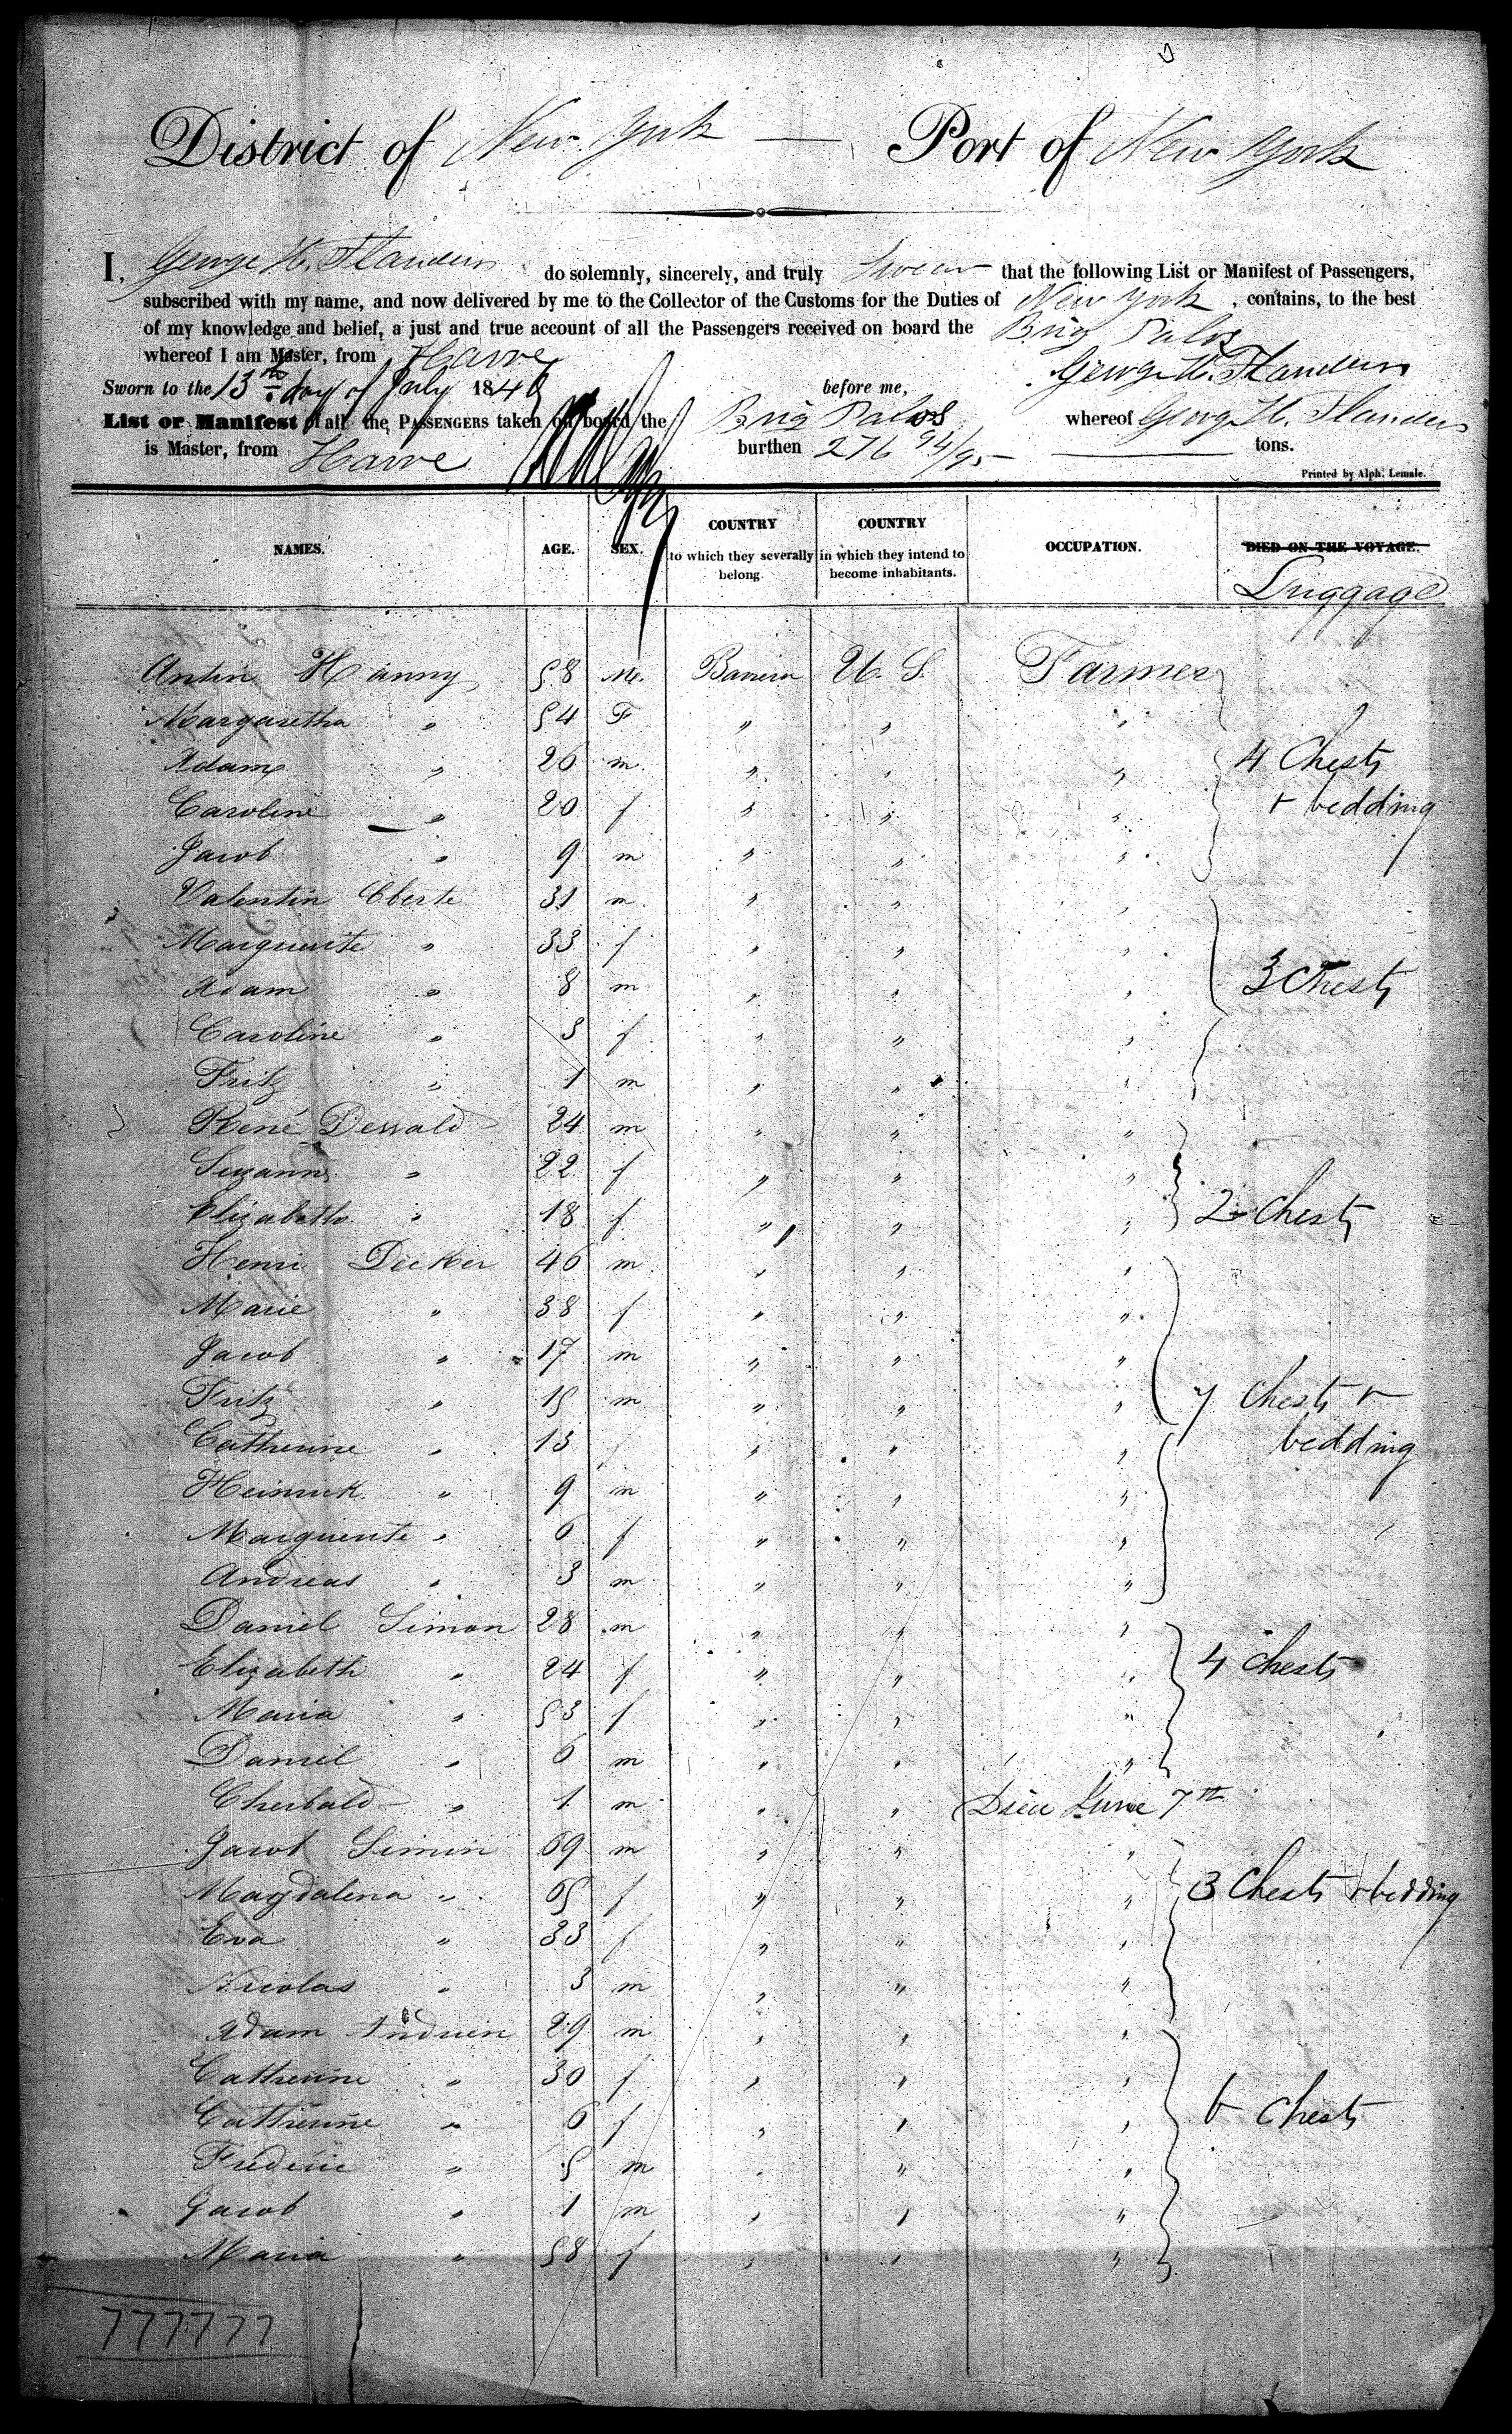 District of New York — Port of New York
I, George H. Flanders do solemnly, sincerely, and truly Swear that the following List or Manifest of Passengers,
subscribed with my name, and now delivered by me to the Collector of the Customs for the Duties of New York, contains, to the best
of my knowledge and belief, a just and true account of all the Passengers received on board the Brig Palos
whereof I am Master, from Havre
George H. Flanders
Sworn to the 13th day of July 1846 before me,
List or Manifest of all the PASSENGERS taken on board the Brig Palos whereof George H. Flanders
is Master, from Havre burthen 276 94/95 tons.
Printed by Alph. Lemale.
NAMES. AGE. SEX. COUNTRY to which they severally belong COUNTRY in which they intend to become inhabitants. OCCUPATION. DIED ON THE VOYAGE.
Luggage
Antin Hanny 58 M. Bavaria U. S. Farmer
Margaretha " 54 F " " "
Adam " 26 m " " " 4 Chests
Caroline " 20 f " " " + bedding
Jacob " 9 m " " "
Valentin Eberte 31 m " " "
Marguerite " 33 f " " "
Adam " 8 m " " " 3 Chests
Caroline " 3 f " " "
Fritz " 1 m " " "
René 24 m " " "
Suzanne " 22 f " " "
Elizabeth " 18 f " " " 2 Chests
Henri Decker 46 m " " "
Marie " 38 f " " "
Jacob " 17 m " " "
Fritz " 15 m " " " 7 Chests +
Catherine " 13 f " " " bedding
Heinrich " 9 m " " "
Marguerite " 6 f " " "
Andreas " 3 m " " "
Daniel Simon 28 m " " "
Elizabeth " 24 f " " " 4 Chests
Maria " 53 f " " "
Daniel " 6 m " " "
" 1 m " " Died June 7th
Jacob Simon 69 m " " "
Magdalena " 65 f " " " 3 Chests + bedding
Eva " 33 f " " "
Nicolas " 3 m " " "
Adam 29 m " " "
Catherine " 30 f " " "
Catherine " 6 f " " " 6 Chests
Frederic " 5 m " " "
Jacob " 1 m " " "
Maria " 58 f " " "
777777